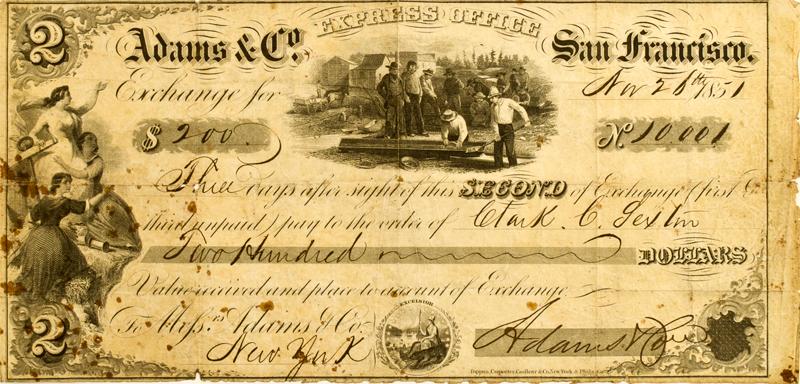 EXPRESS OFFICE
2 Adams & Co. San Francisco.
Exchange for Nov 26th 1851
$ 200 No. 10,001
Three days after sight of this SECOND of Exchange (first &
third unpaid) pay to the order of Clark. C. Sexton
Two Hundred DOLLARS
Value received and place to account of Exchange
To Messrs. Adams & Co.
New York
2
EXCELSIOR
Adams & Co
Toppan, Carpenter, Casilear & Co. New York & Phila.